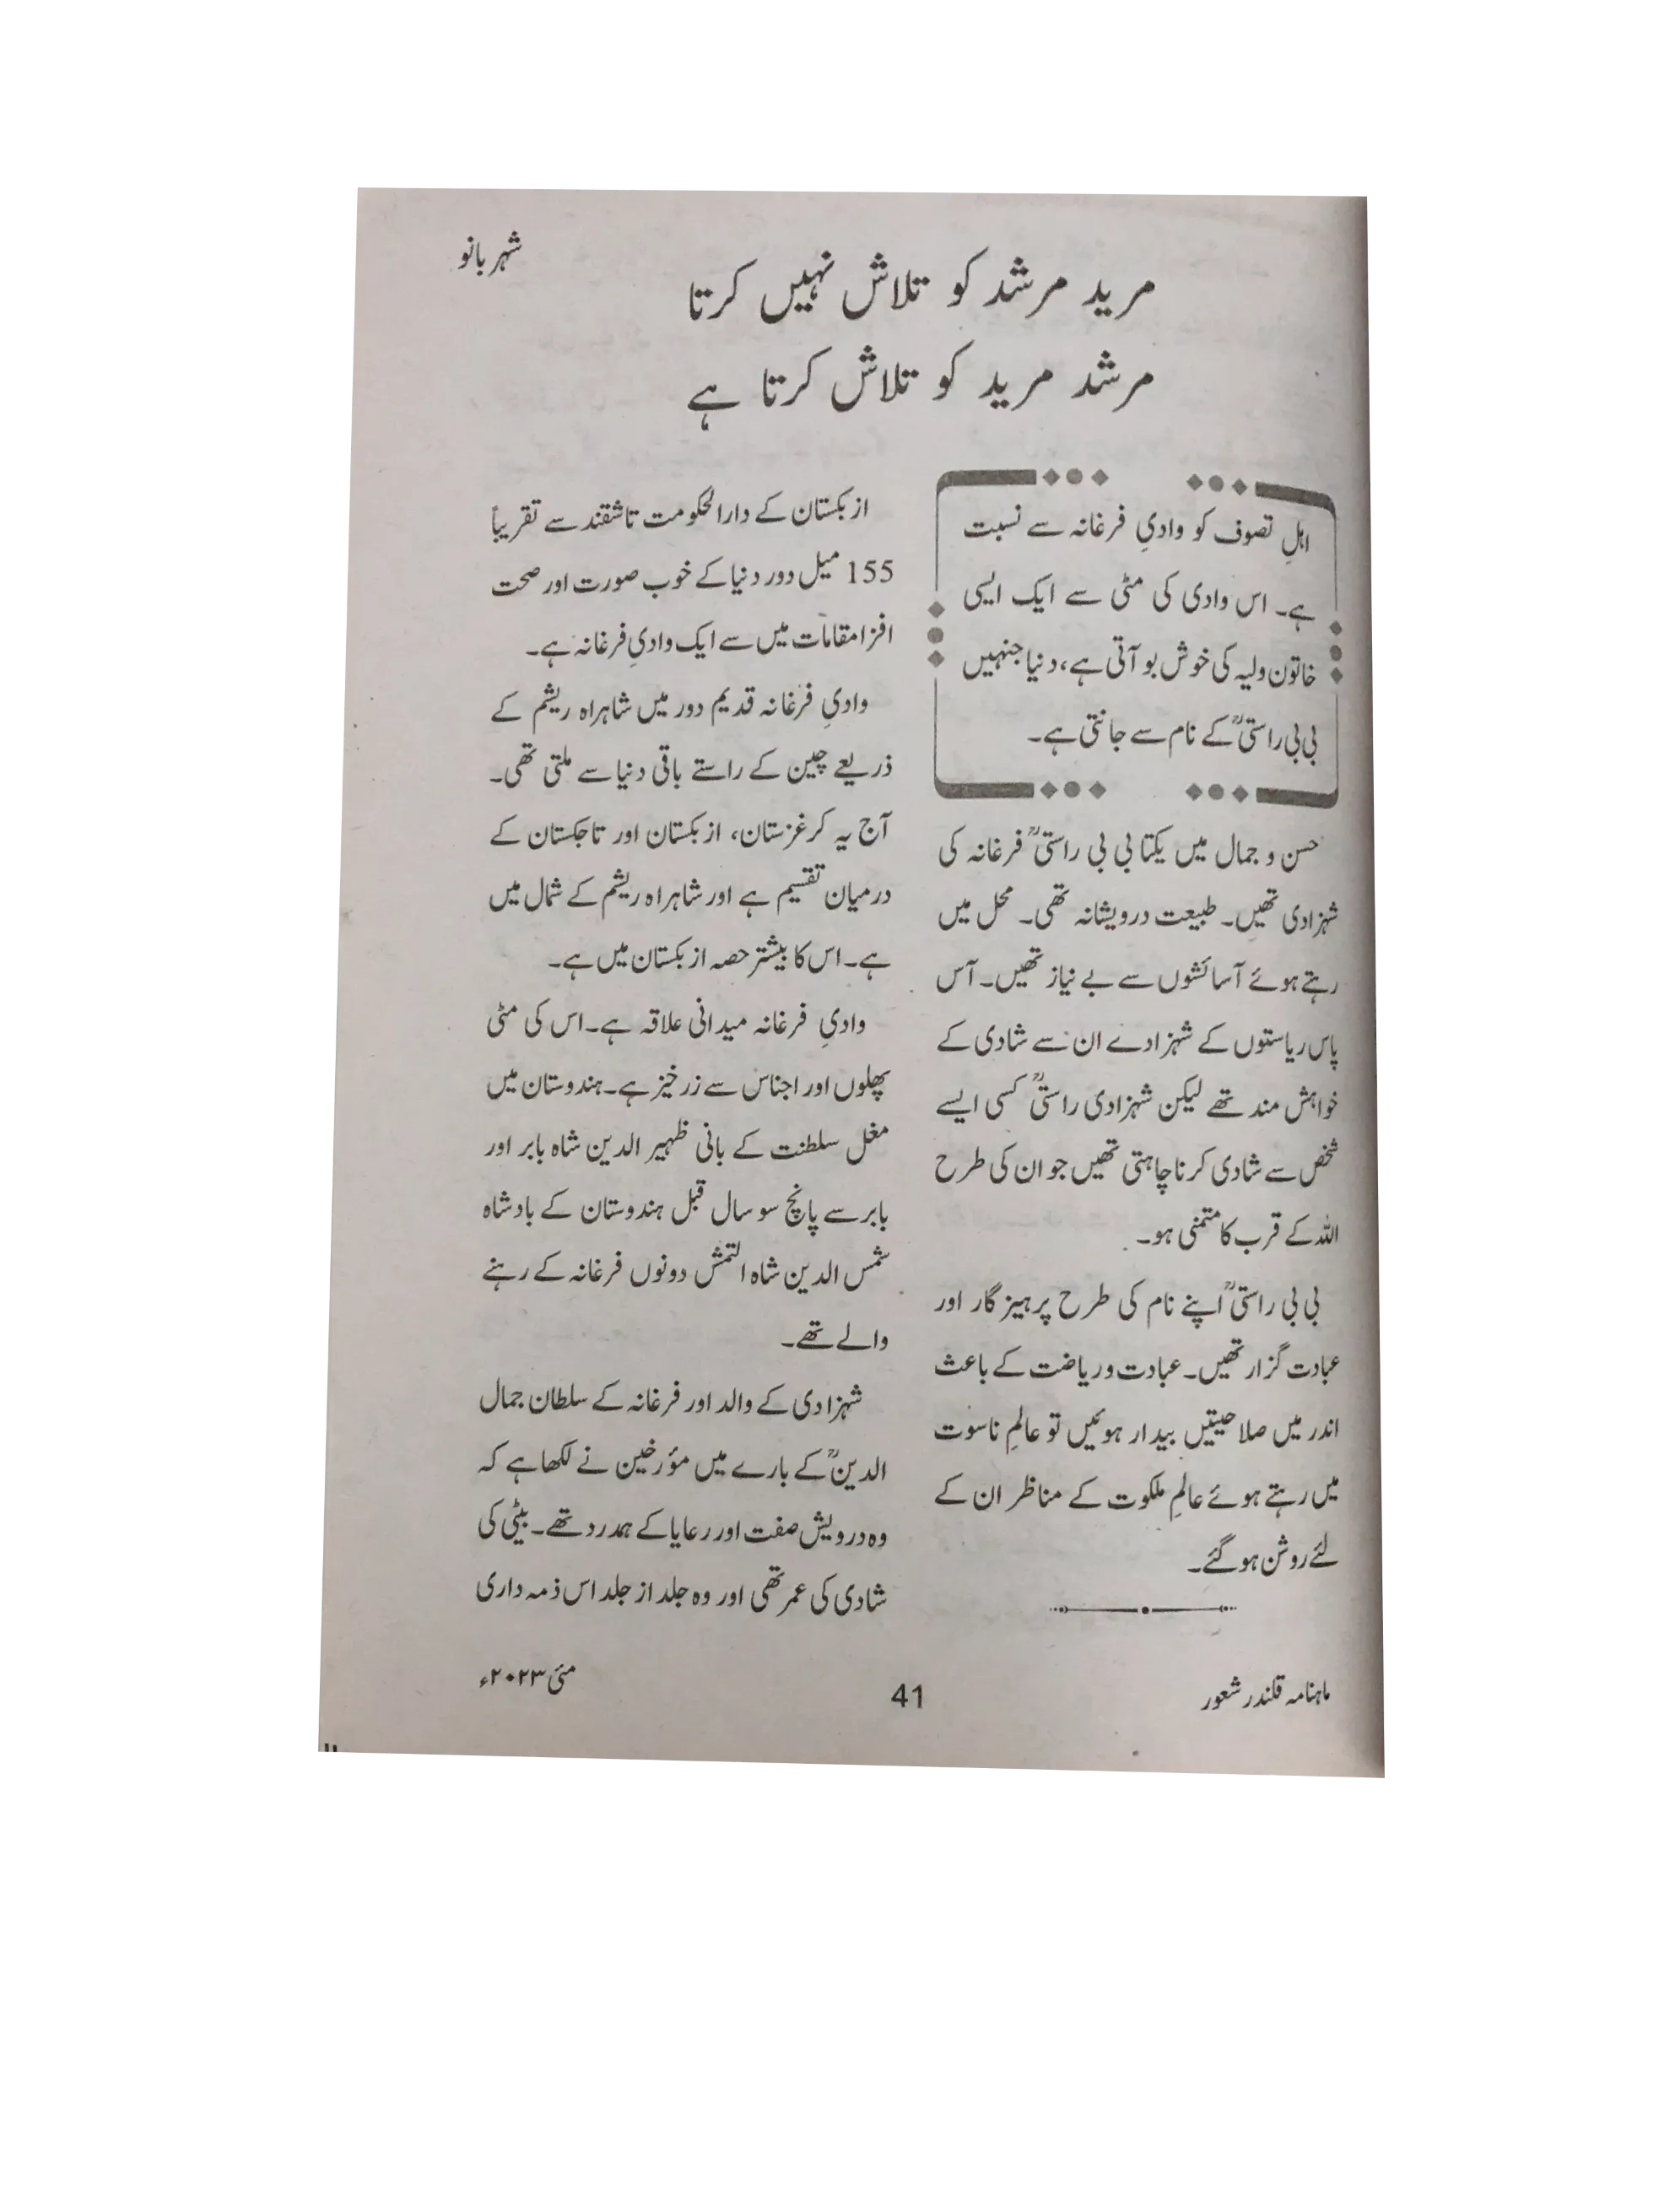 شہر بانو
مرید مرشد کو تلاش نہیں کرتا
مرشد مرید کو تلاش کرتا ہے
اہلِ تصوف کو وادیِ فرغانہ سے نسبت
ہے۔ اس وادی کی مٹی سے ایک ایسی
خاتون ولیہ کی خوش بو آتی ہے، دنیا جنہیں
بی بی راستیؒ کے نام سے جانتی ہے۔
حسن و جمال میں یکتا بی بی راستیؒ فرغانہ کی
شہزادی تھیں۔ طبیعت درویشانہ تھی۔ محل میں
رہتے ہوئے آسائشوں سے بے نیاز تھیں۔ آس
پاس ریاستوں کے شہزادے ان سے شادی کے
خواہش مند تھے لیکن شہزادی راستیؒ کسی ایسے
شخص سے شادی کرنا چاہتی تھیں جو ان کی طرح
اللہ کے قرب کا متمنی ہو۔
بی بی راستیؒ اپنے نام کی طرح پرہیز گار اور
عبادت گزار تھیں۔ عبادت و ریاضت کے باعث
اندر میں صلاحیتیں بیدار ہوئیں تو عالمِ ناسوت
میں رہتے ہوئے عالمِ ملکوت کے مناظر ان کے
لئے روشن ہو گئے۔
ازبکستان کے دارالحکومت تاشقند سے تقریباً
155 میل دور دنیا کے خوب صورت اور صحت
افزا مقامات میں سے ایک وادیِ فرغانہ ہے۔
وادیِ فرغانہ قدیم دور میں شاہراہ ریشم کے
ذریعے چین کے راستے باقی دنیا سے ملتی تھی۔
آج یہ کرغزستان، ازبکستان اور تاجکستان کے
درمیان تقسیم ہے اور شاہراہ ریشم کے شمال میں
ہے۔ اس کا بیشتر حصہ ازبکستان میں ہے۔
وادیِ فرغانہ میدانی علاقہ ہے۔ اس کی مٹی
پھلوں اور اجناس سے زرخیز ہے۔ ہندوستان میں
مغل سلطنت کے بانی ظہیر الدین شاہ بابر اور
بابر سے پانچ سو سال قبل ہندوستان کے بادشاہ
شمس الدین شاہ التمش دونوں فرغانہ کے رہنے
والے تھے۔
شہزادی کے والد اور فرغانہ کے سلطان جمال
الدینؒ کے بارے میں مؤرخین نے لکھا ہے کہ
وہ درویش صفت اور رعایا کے ہمدرد تھے۔ بیٹی کی
شادی کی عمر تھی اور وہ جلد از جلد اس ذمہ داری
ماہنامہ قلندر شعور
41
مئی ۲۰۲۳ء